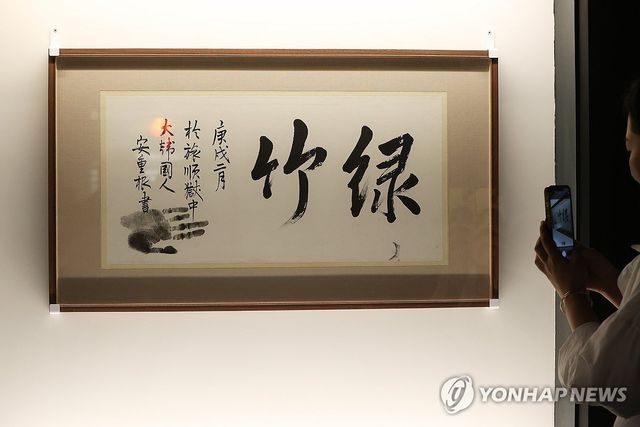 綠竹
庚戌二月
於旅順獄中
大韓國人
安重根書
YONHAP NEWS